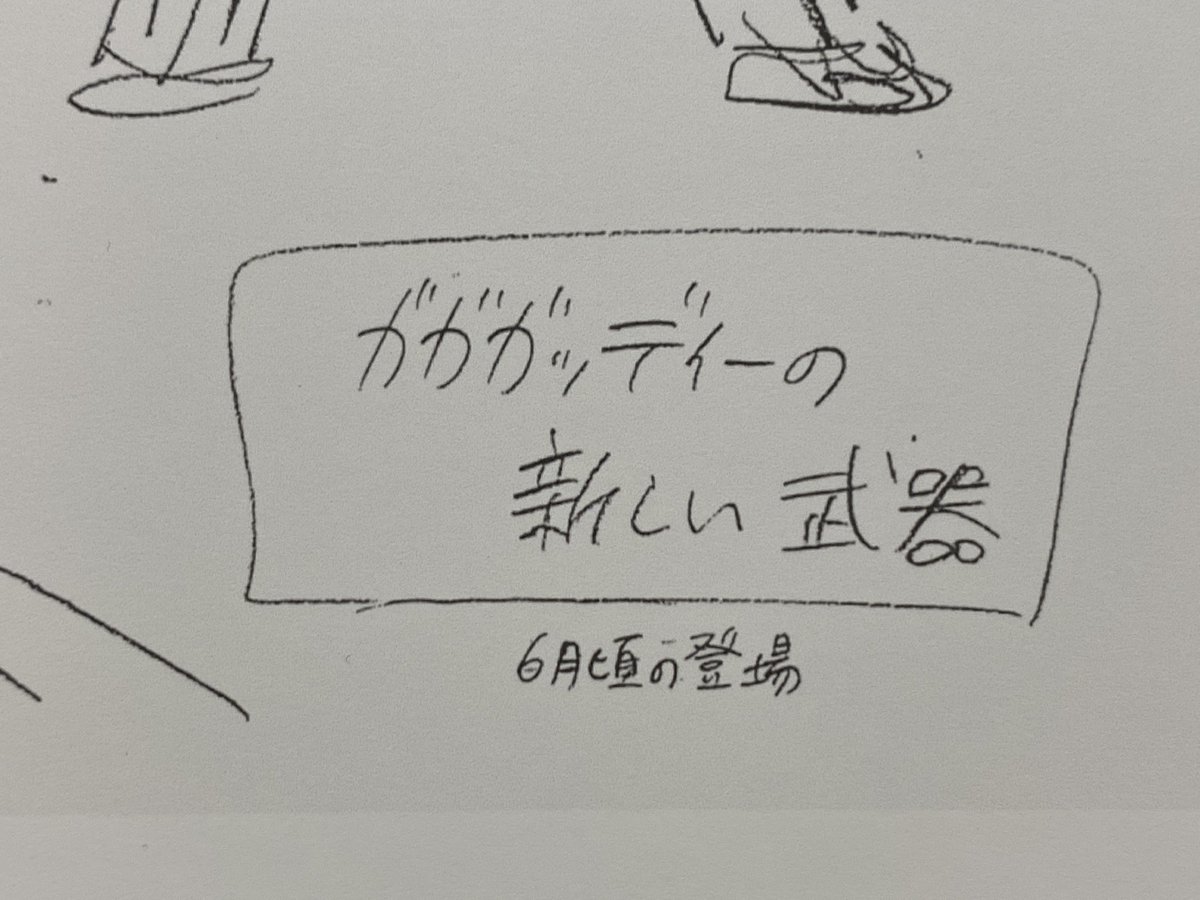 ガガガッディーの
新しい武器
6月頃の登場